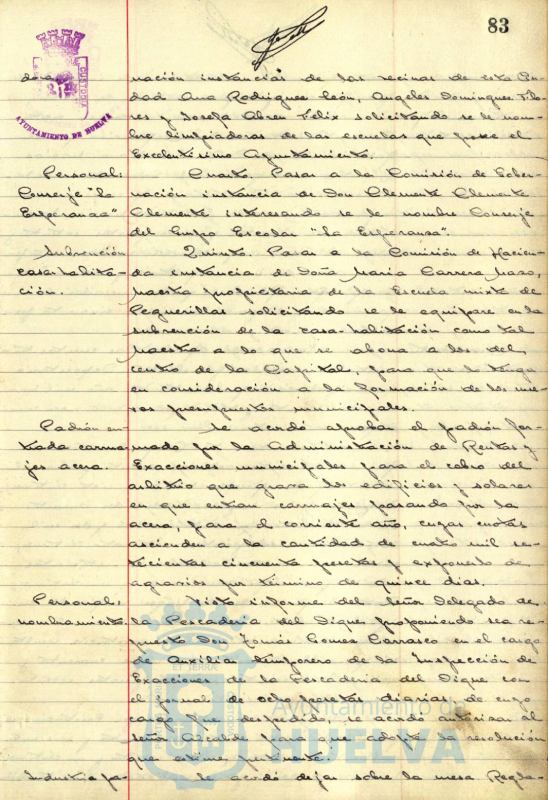 83
CUSTODIA
AYUNTAMIENTO DE HUELVA
dora
nación instancias de las vecinas de esta Ciu-
dad Ana Rodriguez León, Angeles Dominguez Flo-
res y Josefa Abreu Felix solicitando se le nom-
bre limpiadoras de las escuelas que posee el
Excelentísimo Ayuntamiento.
Personal:
Conserje "La
Esperanza"
Cuarto. Pasar a la Comisión de Gober-
nación instancia de Don Clemente Clemente
Clemente interesando se le nombre Conserje
del Grupo Escolar "La Esperanza".
Subvención
casa-habita-
ción.
Quinto. Pasar a la Comisión de Hacien-
da instancia de Doña Maria Carrera
Maestra propietaria de la Escuela mixta de
Peguerillas solicitando se le equipare en la
subvención de la casa-habitación como tal
Maestra a lo que se abona a los del
centro de la Capital, para que lo tenga
en consideración a la formación de los nue-
vos presupuestos municipales.
Padrón en-
trada carrua-
jes acera.
Se acordó aprobar el padrón for-
mado por la Administración de Rentas y
Exacciones municipales para el cobro del
arbitrio que grava los edificios y solares
en que entran carruajes pasando por la
acera, para el corriente año, cuyas cuotas
ascienden a la cantidad de cuatro mil se-
tecientas cincuenta pesetas y exponerlo de
agravios por término de quince dias.
Personal:
nombramiento.
Visto informe del Señor Delegado de
la Pescaderia del Dique proponiendo sea re-
puesto Don Tomás Gomez Carrasco en el cargo
de Auxiliar temporero de la Inspección de
Exacciones de la Pescaderia del Dique con
el jornal de ocho pesetas diarias, de cuyo
cargo fue despedido, se acordó autorizar al
Señor Alcalde para que adopte la resolución
que estime pertinente.
Industria pa-
Se acordó dejar sobre la mesa Regla-
Ayuntamiento de
HUELVA